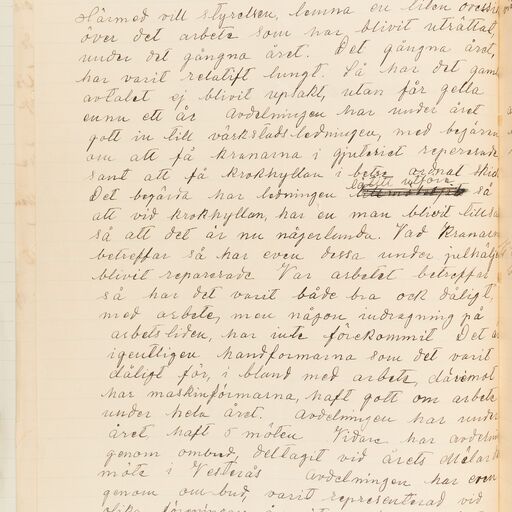 Härmed vill styrelsen, lemna en liten översi
över det arbete som har blivit uträttat,
under det gångna året. Det gångna året,
har varit relatift lungt. Så har det gam
avtalet ej blivit upsakt, utan får gella
ennu ett år Avdelningen har under året
gått in till värkstadsledningen, med begäran
om att få kranarna i gjuteriet repererade
samt att få krokhyllan i betre ordnat skick
Det begärda har ledningen låtit utföra så
att vid krokhyllan, har en man blivit tillsa
så att det är nu någerlunda. Vad Kranarna
betreffar så har even dessa under julhälge
blivit repererade Var arbetet betreffar
så har det varit både bra ock dåligt,
med arbete, men någon indragning på
arbetstiden, har inte förekommit Det är
igentligen handformarna som det varit
dåligt för, i bland med arbete, däremot
har maskinformarna, haft gott om arbete
under hela året. Avdelningen har under
året, haft 5 möten Vidare har avdelnin
genom ombud, deltagit vid årets Mälar
möte i Vesterås Avdelningen har even
genom ombud, varit representerad vid